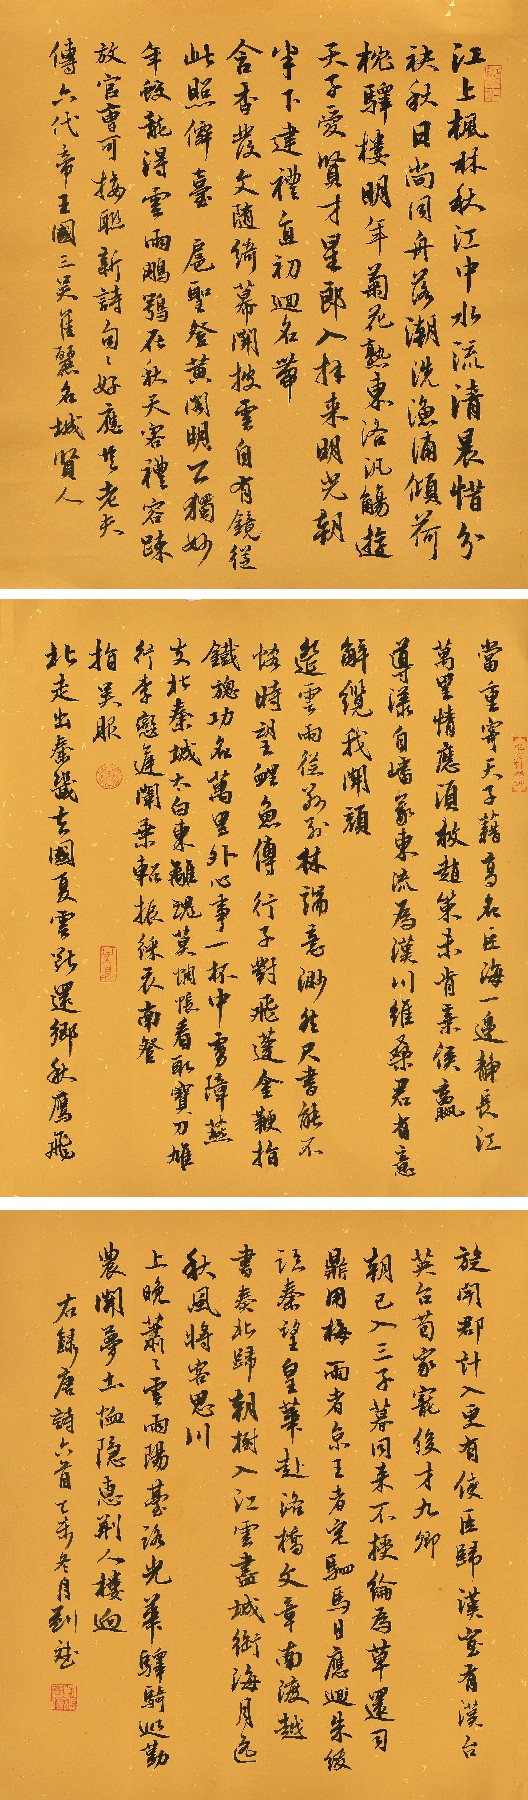 江上楓林秋江中水流清晨惜分
袂秋日尚同舟落潮洗漁浦傾荷
枕驛樓明年菊花熟東洛汎觴遊
天子愛賢才星郎入拜來明光朝
半下建禮直初迴名帶
含香發文隨綺幕開披雲自有鏡從
此照僊臺 扈聖登黃閣明公獨妙
年蛟龍得雲雨鵰鶚在秋天客禮容疎
放官曹可接聯新詩句〻好應任老夫
傳六代帝王國三吳佳麗名城賢人
當重寄天子藉高名巨海一邊靜長江
萬里情應須救趙策未肯棄侯嬴
導漾自嶓冢東流為漢川維桑君有意
解纜我開顏
楚雲雨從別林端意渺然尺書能不
恡時望鯉魚傳行子對飛蓬金鞭指
鐵驄功名萬里外心事一杯中虜障燕
支北秦城太白東離魂莫惆悵看取寶刀雄
行李戀庭闈乘軺振綵衣南登
指吳服
北走出秦畿去國夏雲斷還鄉秋鷹飛
旋聞郡計入更有使臣歸漢室有漢台
英台荀家寵俊才九卿
朝已入三子暮同來不授綸為草還司
鼎用梅兩者京王者宅駟馬日應迴朱紱
誇秦望皇華赴洛橋文章南渡越
書奏北歸朝樹入江雲盡城銜海月遙
秋風將客思川
上晚蕭〻雲雨陽臺路光華驛騎巡勤
農聞夢土恤隱惠荊人樓迥
右錄唐詩六首乙未冬月